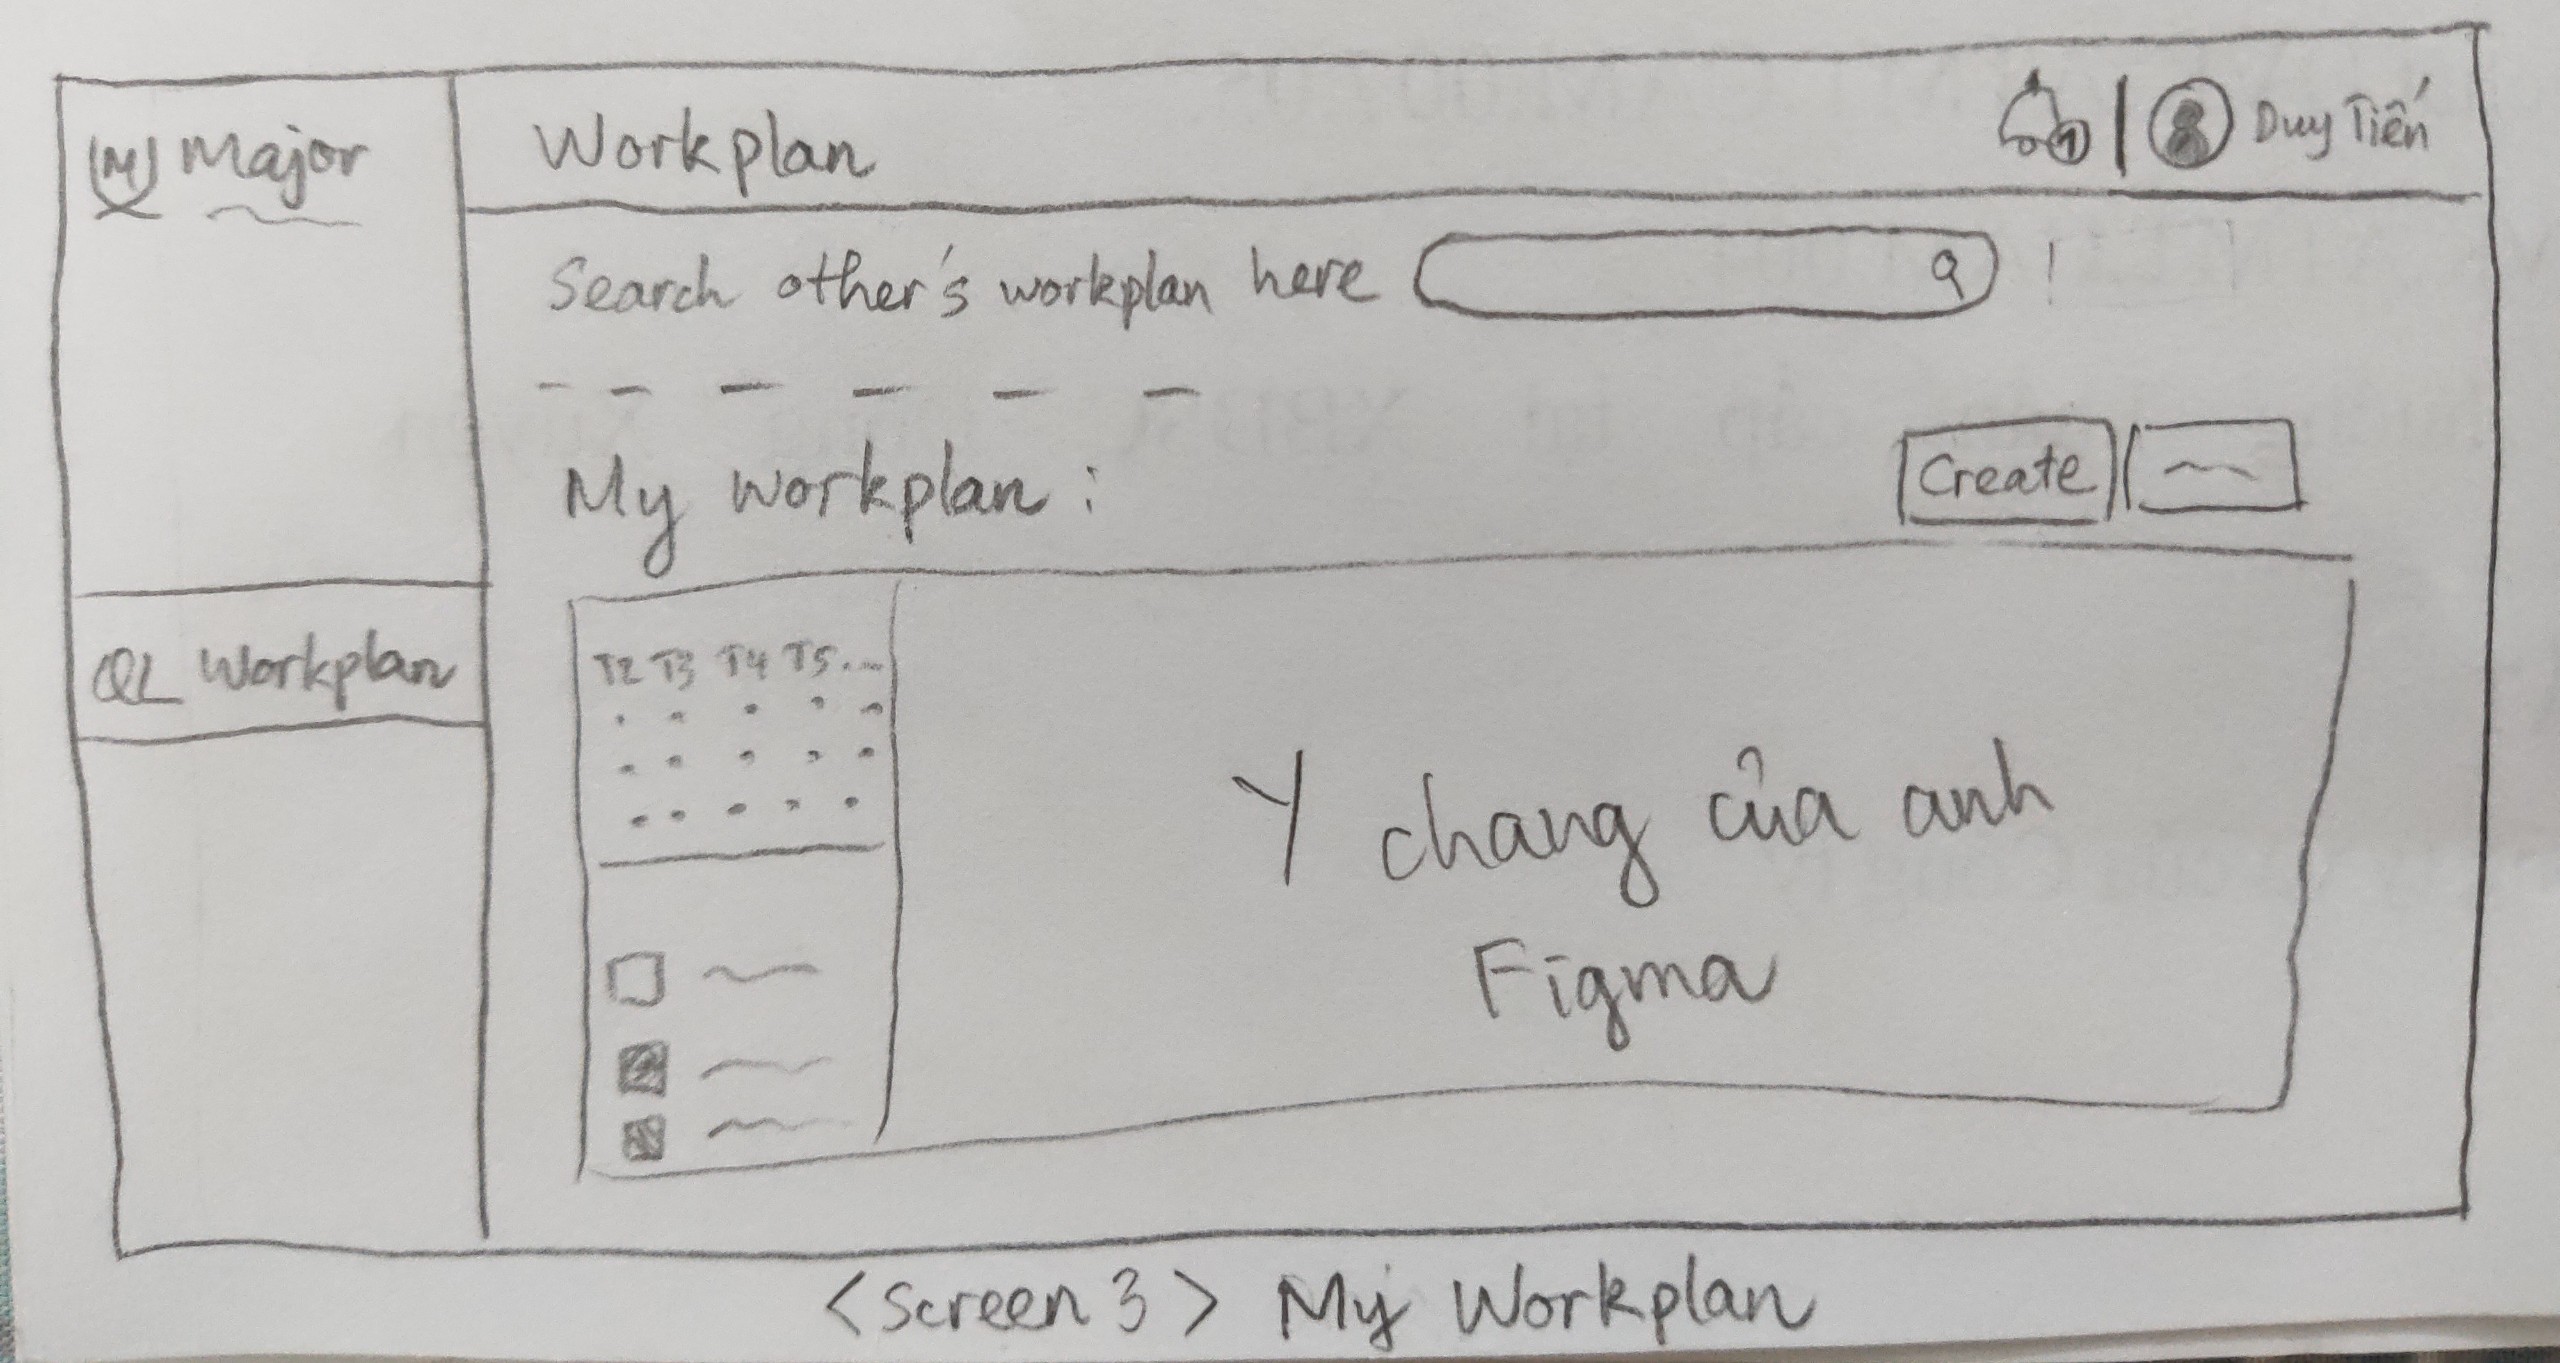 (M) Major
Workplan
1
Duy Tiến
Search other's workplan here !
My workplan :
Create
QL Workplan
T2 T3 T4 T5...
Y chang của anh
Figma
<Screen 3> My Workplan